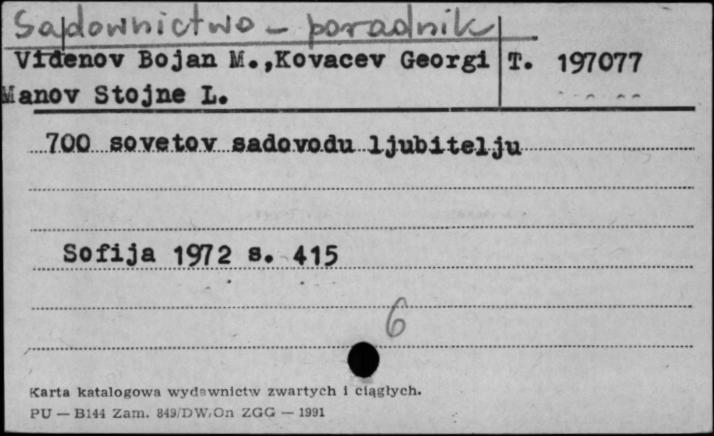 Sadownictwo - poradnik
Videnov Bojan M.,Kovacev Georgi T. 197077
Manov Stojne L.
700 sovetov sadovodu ljubitelju
Sofija 1972 s. 415
6
Karta katalogowa wydawnictw zwartych i ciągłych.
PU — B144 Zam. 849/DW/On ZGG — 1991